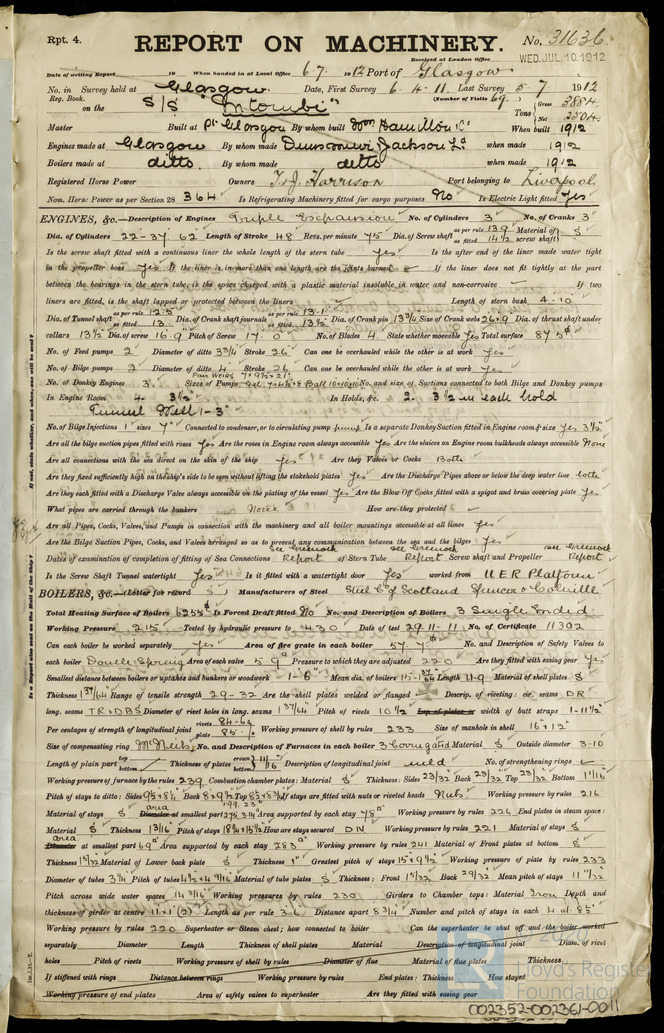 Rpt. 4.
REPORT ON MACHINERY.
No. 31636
Received at London Office
WED. JUL. 10. 1912
Date of writing Report 19 When handed in at Local Office 6.7. 1912 Port of Glasgow
No. in Survey held at Glasgow. Date, First Survey 6.4.11. Last Survey 5.7. 1912
Reg. Book. (Number of Visits 69.)
on the S/S "Intombi" Tons Gross 3884. Net 2504.
Master Built at Pt. Glasgow By whom built Wm Hamilton & Co When built 1912
Engines made at Glasgow By whom made Dunsmuir & Jackson Ld when made 1912
Boilers made at ditto. By whom made ditto when made 1912
Registered Horse Power Owners T. & J. Harrison Port belonging to Liverpool.
Nom. Horse Power as per Section 28 364 Is Refrigerating Machinery fitted for cargo purposes No Is Electric Light fitted Yes
ENGINES, &c.—Description of Engines Triple Expansion No. of Cylinders 3 No. of Cranks 3
Dia. of Cylinders 22-37-62 Length of Stroke 48 Revs. per minute 75 Dia. of Screw shaft as per rule 13.9 as fitted 14 1/2 Material of screw shaft S
Is the screw shaft fitted with a continuous liner the whole length of the stern tube Yes Is the after end of the liner made water tight
in the propeller boss Yes If the liner is in more than one length are the joints burned If the liner does not fit tightly at the part
between the bearings in the stern tube, is the space charged with a plastic material insoluble in water and non-corrosive If two
liners are fitted, is the shaft lapped or protected between the liners Length of stern bush 4-10
Dia. of Tunnel shaft as per rule 12.5 as fitted 13 Dia. of Crank shaft journals as per rule 13.1 as fitted 13 1/2 Dia. of Crank pin 13 3/4 Size of Crank webs 26x9 Dia. of thrust shaft under
collars 13 1/2 Dia. of screw 16.9 Pitch of Screw 17.0 No. of Blades 4 State whether moveable Yes Total surface 87.5
No. of Feed pumps 2 Diameter of ditto 3 3/4 Stroke 26 Can one be overhauled while the other is at work Yes
No. of Bilge pumps 2 Diameter of ditto 4 Stroke 26 Can one be overhauled while the other is at work Yes
No. of Donkey Engines 3 Sizes of Pumps No. and size of Suctions connected to both Bilge and Donkey pumps
In Engine Room 4- 3 1/2" In Holds, &c. 2- 3 1/2 in each hold
Tunnel Well 1-3"
No. of Bilge Injections 1 sizes 7" Connected to condenser, or to circulating pump pump Is a separate Donkey Suction fitted in Engine room & size Yes 3 1/2"
Are all the bilge suction pipes fitted with roses Yes Are the roses in Engine room always accessible Yes Are the sluices on Engine room bulkheads always accessible None
Are all connections with the sea direct on the skin of the ship Yes Are they Valves or Cocks Both
Are they fixed sufficiently high on the ship's side to be seen without lifting the stokehold plates Yes Are the Discharge Pipes above or below the deep water line both
Are they each fitted with a Discharge Valve always accessible on the plating of the vessel Yes Are the Blow Off Cocks fitted with a spigot and brass covering plate Yes
What pipes are carried through the bunkers None How are they protected
Are all Pipes, Cocks, Valves, and Pumps in connection with the machinery and all boiler mountings accessible at all times Yes
Are the Bilge Suction Pipes, Cocks, and Valves arranged so as to prevent any communication between the sea and the bilges Yes
Dates of examination of completion of fitting of Sea Connections see Greenock Report of Stern Tube see Greenock Report Screw shaft and Propeller see Greenock Report
Is the Screw Shaft Tunnel watertight Yes Is it fitted with a watertight door Yes worked from U.E.R. Platform
BOILERS, &c.—(Letter for record S) Manufacturers of Steel Steel Co of Scotland Spencer & Colville
Total Heating Surface of Boilers 6255 Is Forced Draft fitted No No. and Description of Boilers 3 Single Ended
Working Pressure 215 Tested by hydraulic pressure to 430 Date of test 29.11.11 No. of Certificate 11302
Can each boiler be worked separately Yes Area of fire grate in each boiler 57.7 No. and Description of Safety Valves to
each boiler Double Spring Area of each valve 5.9 Pressure to which they are adjusted 220 Are they fitted with easing gear Yes
Smallest distance between boilers or uptakes and bunkers or woodwork 1-6" Mean dia. of boilers Length 11-9 Material of shell plates S
Thickness 1 37/64 Range of tensile strength 29-32 Are the shell plates welded or flanged Descrip. of riveting: cir. seams DR
long. seams TR&DBS Diameter of rivet holes in long. seams 1 37/64 Pitch of rivets 10 1/2 Lap of plates or width of butt straps 1-11 1/2
Per centages of strength of longitudinal joint rivets plate 85. Working pressure of shell by rules 233 Size of manhole in shell 16x12
Size of compensating ring McNeils No. and Description of Furnaces in each boiler 3 Corrugated Material S Outside diameter 3-10
Length of plain part top bottom Thickness of plates crown bottom 11/16 Description of longitudinal joint weld No. of strengthening rings
Working pressure of furnace by the rules 239 Combustion chamber plates: Material S Thickness: Sides 23/32 Back 23/32 Top 23/32 Bottom 1 1/16"
Pitch of stays to ditto: Sides Back Top If stays are fitted with nuts or riveted heads Nuts. Working pressure by rules 216
Material of stays S area Diameter at smallest part Area supported by each stay 78 Working pressure by rules 226 End plates in steam space:
Material S Thickness 1 3/16 Pitch of stays How are stays secured DN Working pressure by rules 221 Material of stays S
area Diameter at smallest part Area supported by each stay 283 Working pressure by rules 241 Material of Front plates at bottom S
Thickness 15/32 Material of Lower back plate S Thickness 1" Greatest pitch of stays 15x9 1/2 Working pressure of plate by rules 233
Diameter of tubes 3 1/4 Pitch of tubes 4 1/2 x 4 9/16 Material of tube plates S Thickness: Front Back 29/32 Mean pitch of stays
Pitch across wide water spaces 14 3/16 Working pressures by rules 230 Girders to Chamber tops: Material Iron Depth and
thickness of girder at centre 11x1 (2) Length as per rule 3.6 Distance apart 8 3/4 Number and pitch of stays in each 4 at 85
Working pressure by rules 220 Superheater or Steam chest; how connected to boiler Can the superheater be shut off and the boiler worked
separately Diameter Length Thickness of shell plates Material Description of longitudinal joint Diam. of rivet
holes Pitch of rivets Working pressure of shell by rules Diameter of flue Material of flue plates Thickness
If stiffened with rings Distance between rings Working pressure by rules End plates: Thickness How stayed
Working pressure of end plates Area of safety valves to superheater Are they fitted with easing gear
Lloyd's Register
Foundation
002352-002361-0011